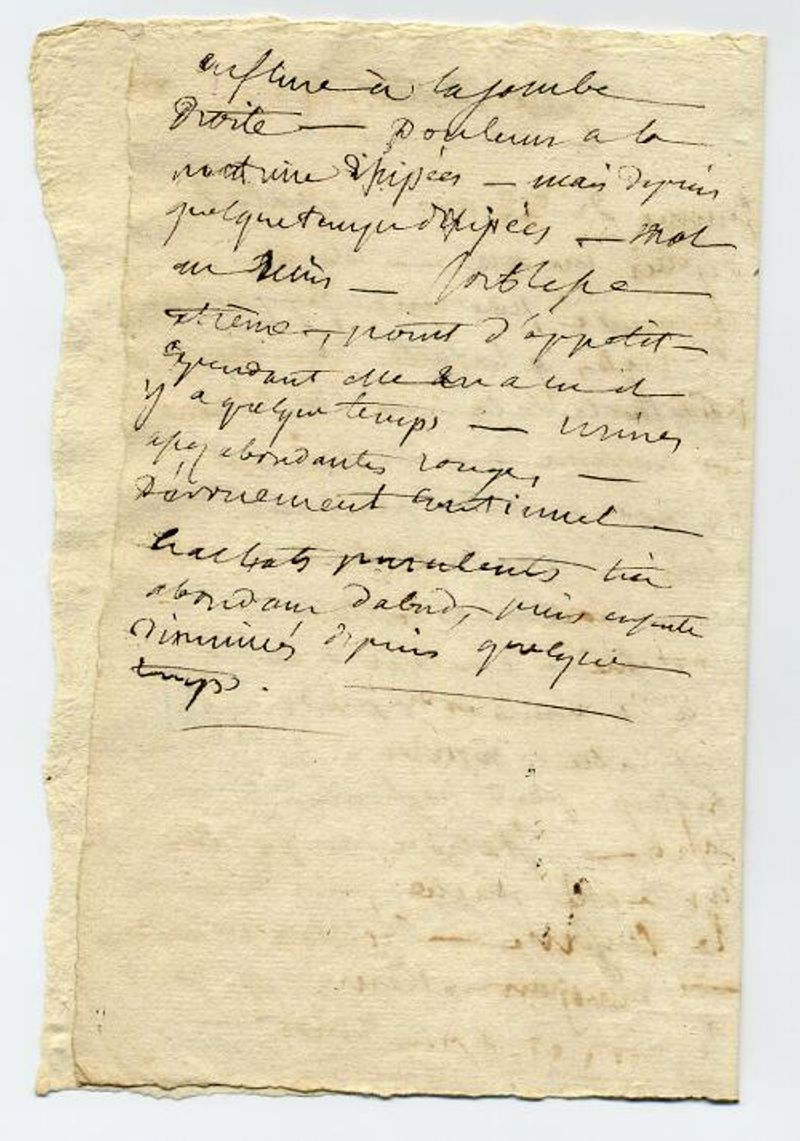 enflure à la jambe
Droite — Douleurs a la
poitrine dissipées — mais depuis
quelque temps dissipées — mal
au Reins — foiblesse
extrême —, point d'appetit —
Cependant elle en a eu il
y a quelque temps — urines
assez abondantes rouges, —
Dévoiement Continuel —
Crachats purulents très
abondans d'abord, puis ensuite
Diminués depuis quelque
temps.